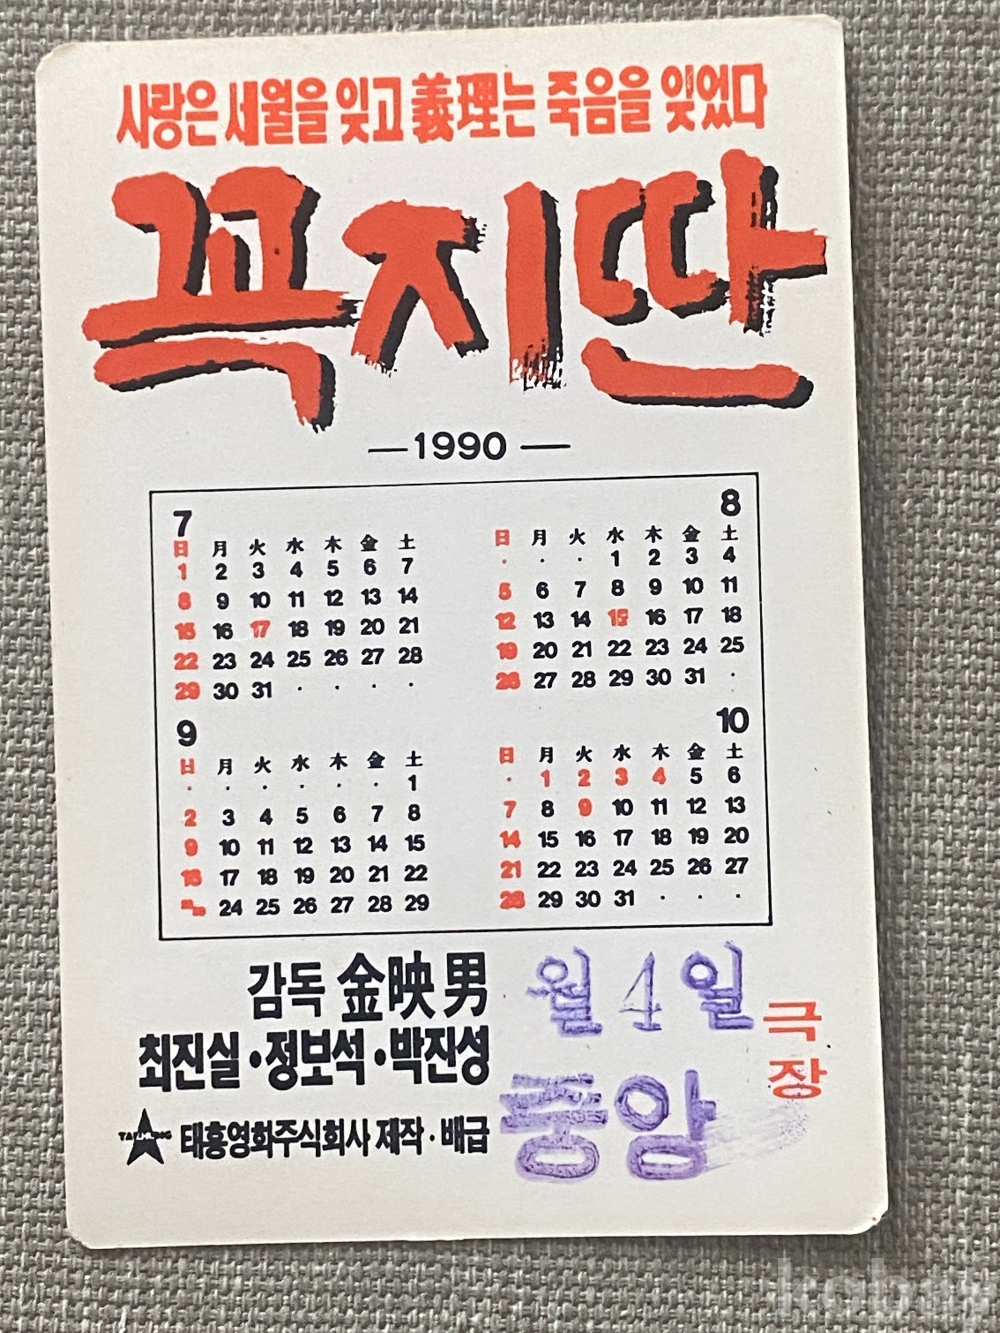 사랑은 세월을 잊고 義理는 죽음을 잊었다
꼭지딴
—1990—
7
日 月 火 水 木 金 土
1 2 3 4 5 6 7
8 9 10 11 12 13 14
15 16 17 18 19 20 21
22 23 24 25 26 27 28
29 30 31 · · · ·
8
日 月 火 水 木 金 土
· · · 1 2 3 4
5 6 7 8 9 10 11
12 13 14 15 16 17 18
19 20 21 22 23 24 25
26 27 28 29 30 31 ·
9
日 月 火 水 木 金 土
· · · · · · 1
2 3 4 5 6 7 8
9 10 11 12 13 14 15
16 17 18 19 20 21 22
24 25 26 27 28 29
10
日 月 火 水 木 金 土
· 1 2 3 4 5 6
7 8 9 10 11 12 13
14 15 16 17 18 19 20
21 22 23 24 25 26 27
28 29 30 31 · · ·
감독 金映男
최진실·정보석·박진성
태흥영화주식회사 제작·배급
월 4 일
중앙
극장
kobay